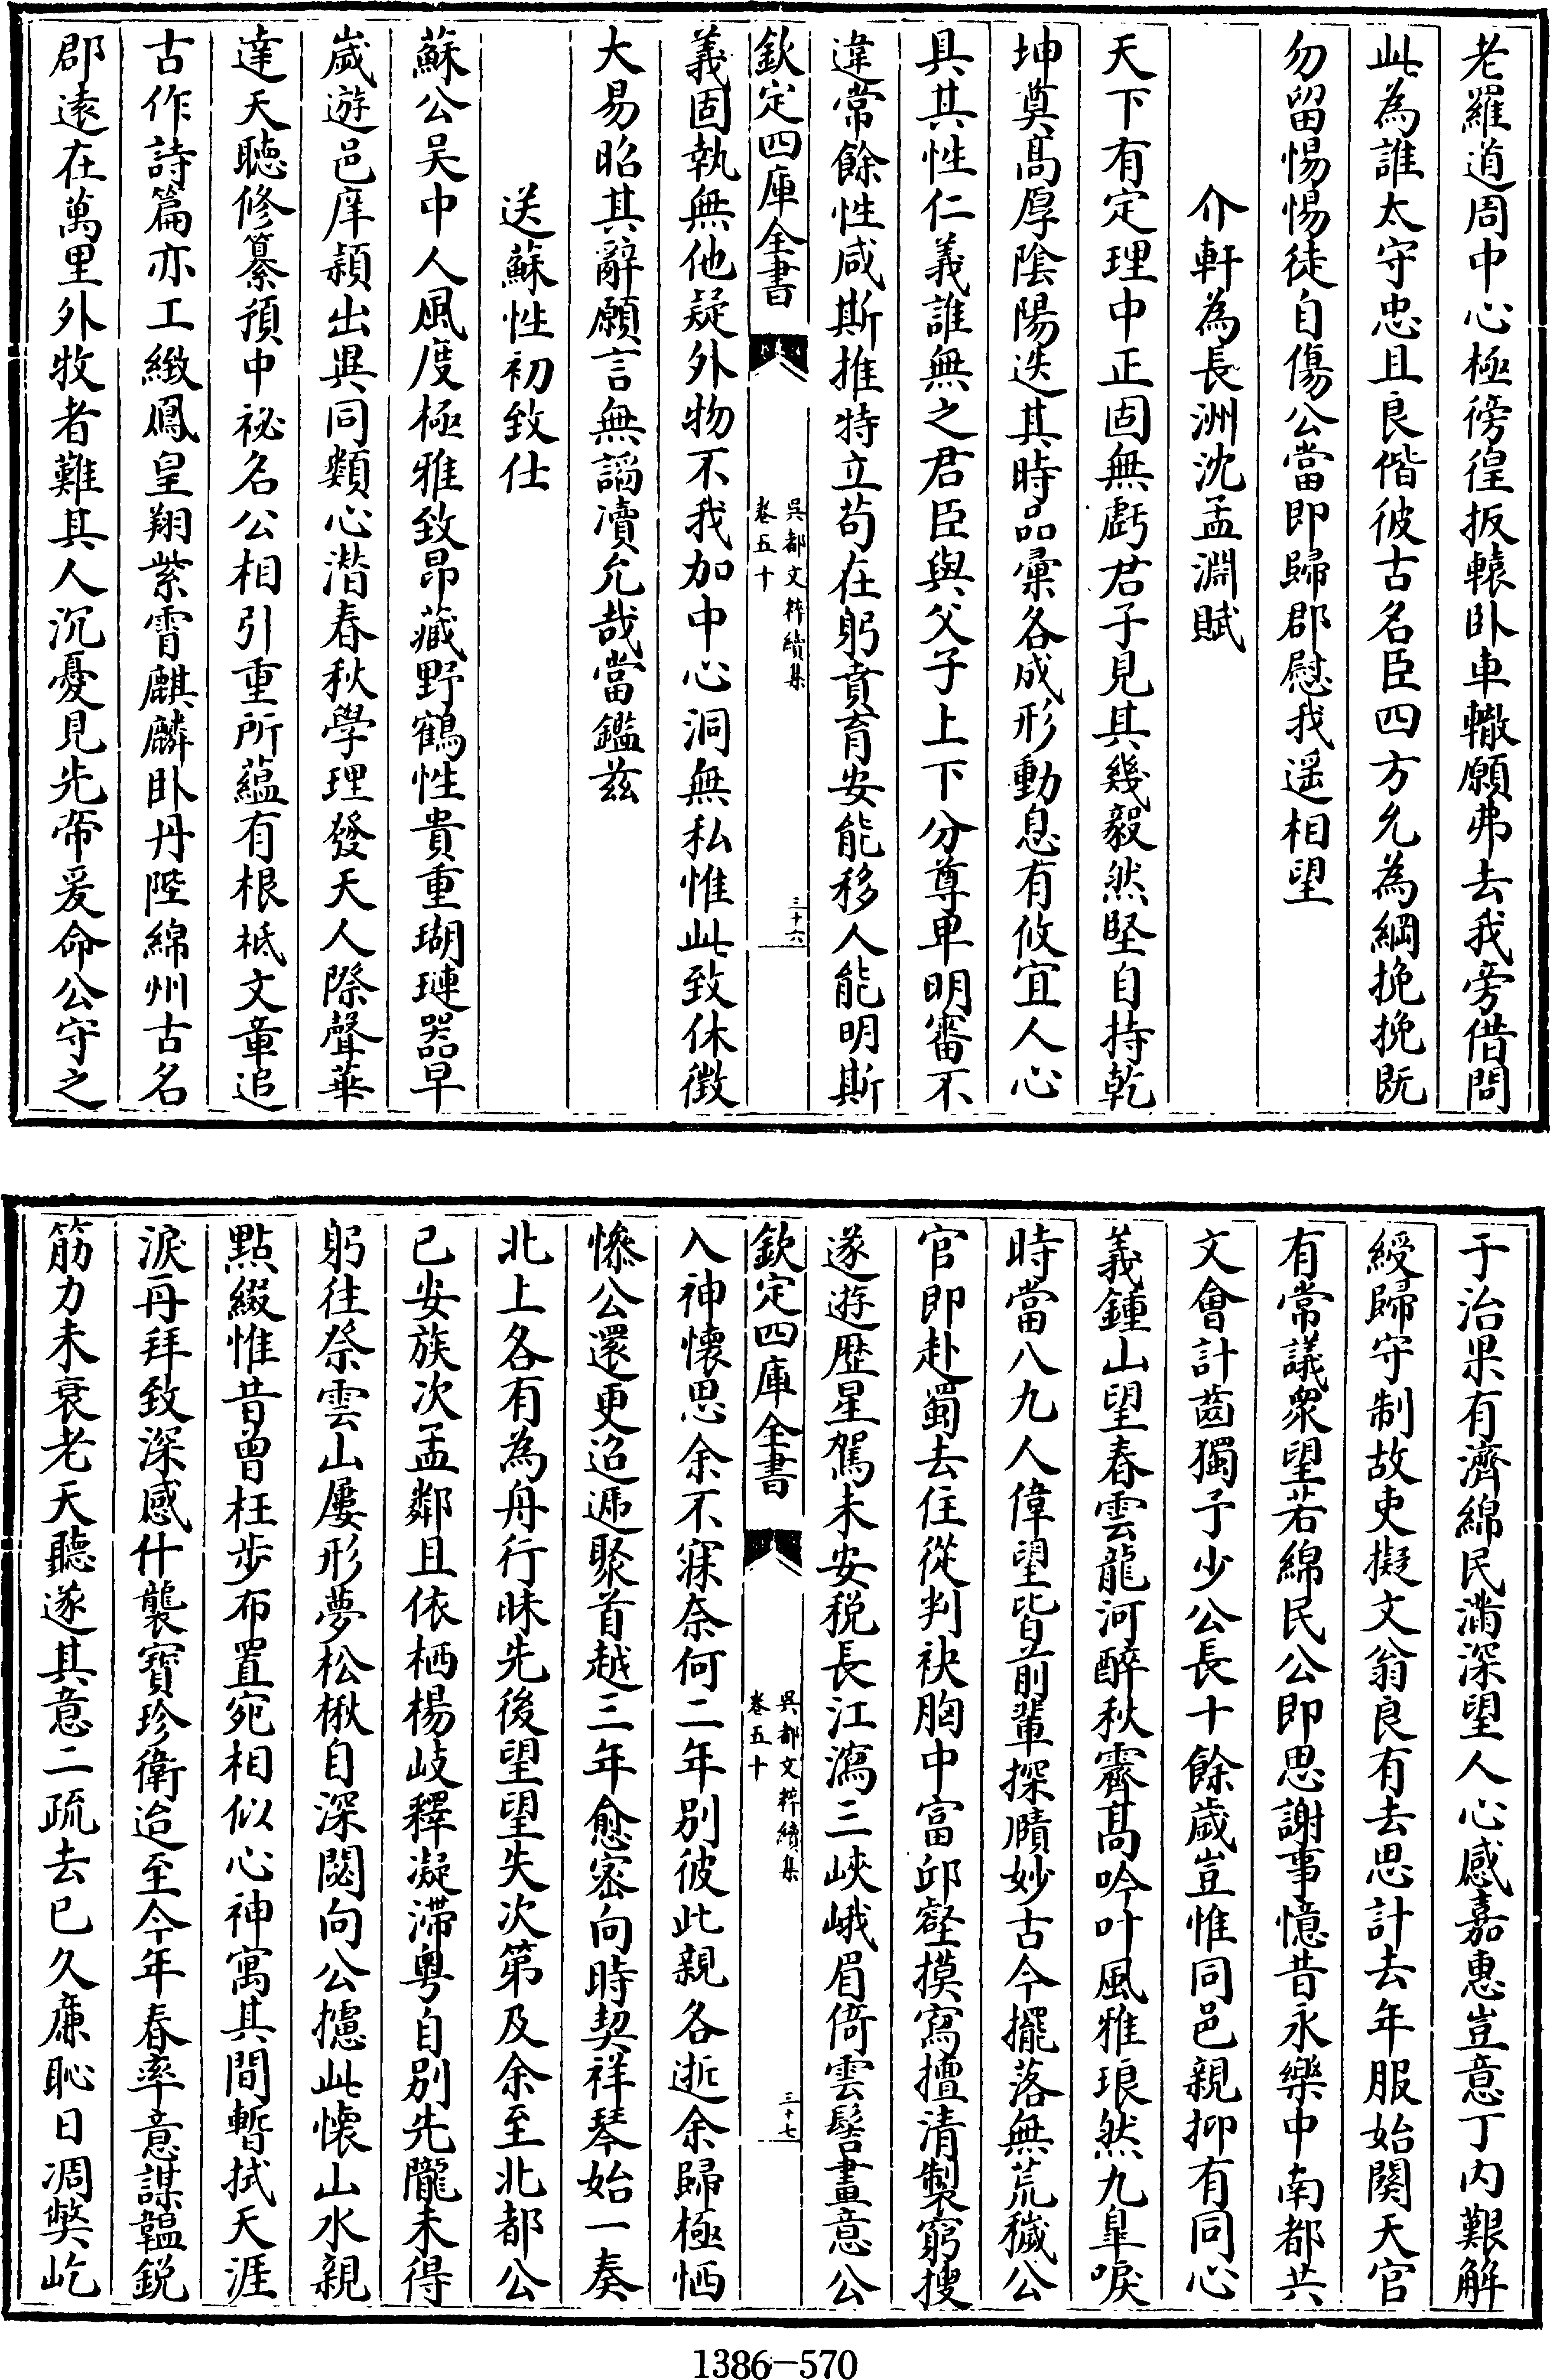 老羅道周中心極徬徨扳轅卧車轍願弗去我旁借問
此為誰太守忠且良偕彼古名臣四方允為綱挽挽既
勿留惕惕徒自傷公當即歸郡慰我遥相望
介軒為長洲沈孟淵賦
天下有定理中正固無虧君子見其幾毅然堅自持乾
坤奠髙厚陰陽迭其時品彚各成形動息有攸宜人心
具其性仁義誰無之君臣與父子上下分尊卑明審不
違常餘性咸斯推特立苟在躬賁育安能移人能明斯
欽定四庫全書
吳都文粹續集
卷五十
三十六
義固執無他疑外物不我加中心洞無私惟此致休徵
大易昭其辭願言無謟瀆允哉當鑑兹
送蘇性初致仕
蘇公吴中人風度極雅致昂藏野鶴性貴重瑚璉器早
歲遊邑庠頴出異同類心潛春秋學理發天人際聲華
達天聴修纂預中祕名公相引重所蘊有根柢文章追
古作詩篇亦工緻鳳皇翔紫霄麒麟卧丹陛綿州古名
郡逺在萬里外牧者難其人沉憂見先帝爰命公守之
于治果有濟綿民滿深望人心感嘉惠豈意丁内艱解
綬歸守制故吏擬文翁良有去思計去年服始闋天官
有常議衆望若綿民公即思謝事憶昔永樂中南都共
文會計齒獨予少公長十餘歲豈惟同邑親抑有同心
義鍾山望春雲龍河醉秋霽髙吟叶風雅琅然九臯唳
時當八九人偉望皆前輩探賾妙古今擺落無荒穢公
官即赴蜀去住從判袂胸中富邱壑摸寫擅清製窮搜
遂遊歴星駕未安税長江瀉三峽峨眉倚雲髻畫意公
欽定四庫全書
吳都文粹續集
卷五十
三十七
入神懷思余不寐奈何二年别彼此親各逝余歸極恓
慘公還更迢遞聚首越三年愈密向時契祥琴始一奏
北上各有為舟行昧先後望望失次第及余至北都公
已安族次孟鄰且依栖楊岐釋凝滯粤自别先隴未得
躬往祭雲山屢形夢松楸自深閟向公攄此懷山水親
點綴惟昔曾枉步布置宛相似心神寓其間暫拭天涯
淚再拜致深感什襲寳珍衛迨至今年春率意謀韞鋭
筋力未衰老天聽遂其意二疏去已久㢘恥日凋獘屹
1386—570